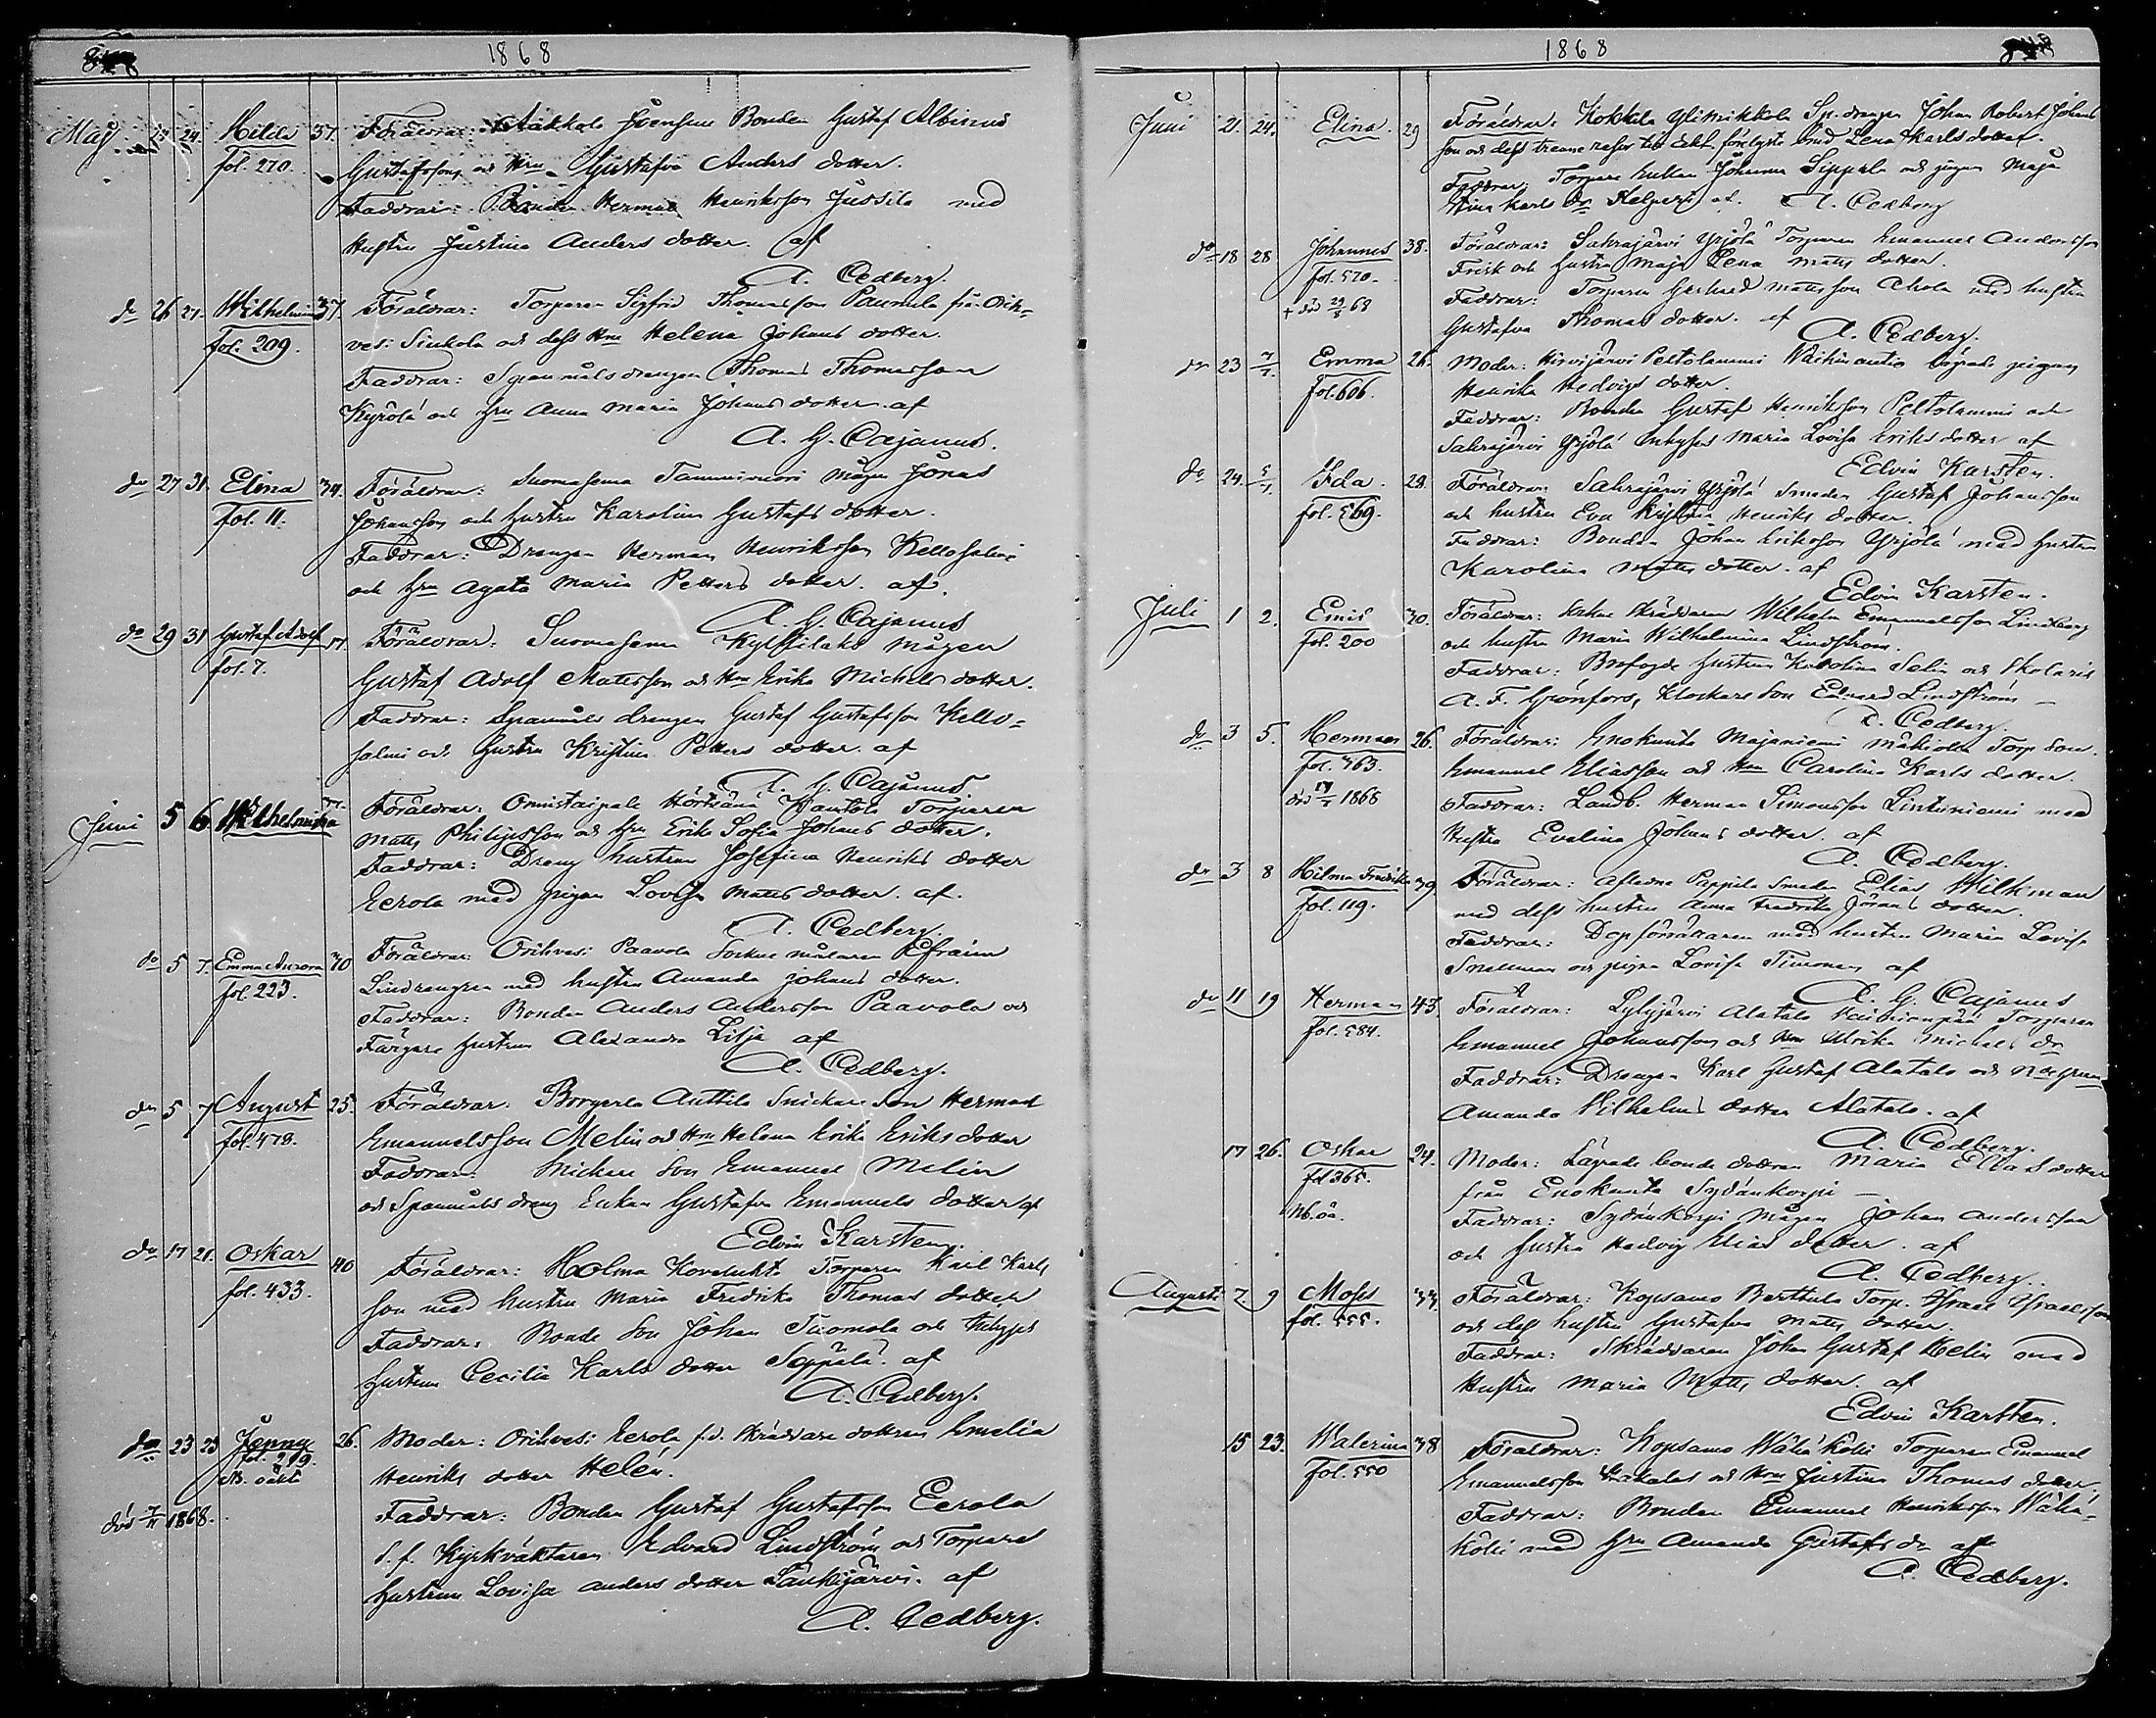 1868
Maj 24. Hilda 37. Föräldrar: Bonden Gustaf Albinus
fol. 270. Gustafsson och Hru Gustafva Anders dotter.
Faddrar: Bonden Herman Henriksson Jussila med
Hustru Justina Anders dotter. af
A. Cedberg.
do 26 27. Wilhelmina 37. Föräldrar: Torparen Sigfrid Thomasson Paunula från Orih-
fol. 209. vesi Sinkola och dess Hru Helena Johans dotter.
Faddrar: Spannmålsdrängen Thomas Thomasson
Kyrölä och Hru Anna Maria Johans dotter. af
A. G. Cajanus.
do 27 31. Elina 34. Föräldrar: Suomasema Tamminiori mågen Jonas
fol. 11. Johansson och hustru Karolina Gustafs dotter.
Faddrar: Drängen Herman Henriksson Kellosalmi
och Hru Agata Maria Petters dotter. af.
A. G. Cajanus
do 29 31 Gustaf Adolf Föräldrar: Suomasema mågen
fol. 7. Gustaf Adolf Matsson och Hru Erika Michels dotter.
Faddrar: Spanmåls drängen Gustaf Gustafsson Kello-
salmi och hustru Kristina Petters dotter. af
A. G. Cajanus
Juni 5 6 Wilhelmina Föräldrar: Onnistaipale Torparen
Matts Philipsson och Hru Erika Sofia Johans dotter.
Faddrar: Dräng hustrun Josefina Henriks dotter
Eerola med pigan Lovisa Matts dotter. af.
A. Cedberg.
do 5 7. Emma Aurora 30 Föräldrar: Orihvesi Paavola Sockne målaren Efraim
fol. 223. Lindrengren med hustru Amanda Johans dotter.
Faddrar: Bonden Anders Andersson Paavola och
Färgare hustrun Alexandra Lilja af
A. Cedberg.
do 5 7 August 25. Föräldrar. Borgerla Anttila Snickare Son Herman
fol. 478. Emanuelsson Melin och Hru Helena Erika Eriks dotter
Faddrar: Snickare Son Emanuel Melin
och Spanmåls dräng Enkan Gustafva Emanuels dotter af
Edvin Karsten.
do 17 21. Oskar 40 Föräldrar: Holma Torparen Karl Karls
fol. 433. son med hustru Maria Fredrika Thomas dotter
Faddrar: Bonde Son Johan Tuomola och Inhyses
hustrun Cecilia Karls dotter Seppälä. af
A. Cedberg.
do 23 23 Jenny 26. Moder: Orihvesi Eerola f.d. Skräddare dottern Emelia
fol. 219. Henriks dotter Helén.
Nb. oäkta Faddrar: Bonden Gustaf Gustafsson Eerola
död 7/11 1868. d. f. Kyrkväktaren Edvard Lindström och Torpare
hustrun Lovisa Anders dotter Länkijärvi. af
A. Cedberg.
1868
Juni 21. 24. Elina. 29 Föräldrar: Kokkila Ylimikkola Sp. drängen Johan Robert Johans
son och dess trenne resor till äkt. förelyste brud Lena Karls dotter.
Faddrar: Torpare Enkan Johanna Seppälä och pigan Maja
Stina Karls dr af. A. Cedberg
do 18 28 Johannes 38. Föräldrar: Sahrajärvi Yrjölä Torparen Emanuel Andersson
fol. 570. Frisk och hustru Maja Lena Matts dotter.
+ död 29/8 68 Faddrar: Torparen Gerhard Mattsson Ahola med hustru
Gustafva Thomas dotter. af
A. Cedberg.
do 23 Emma 26. Moder: Hirvijärvi Peltolammi lägrade pigan
fol. 606. Henrika Hedvigs dotter.
Faddrar: Bonden Gustaf Henriksson Peltolammi och
Sahrajärvi Yrjölä Inhyses Maria Lovisa Eriks dotter af
Edvin Karsten.
do 24. Ida. 28. Föräldrar: Sahrajärvi Yrjölä Smeden Gustaf Johansson
fol. 569. och hustru Eva Kristina Henriks dotter.
Faddrar: Bonden Johan Eriksson Yrjölä med hustru
Karolina Matts dotter. af
Edvin Karsten.
Juli 1 2. Emil 30. Föräldrar: Sockne skräddaren Wilhelm Emanuelsson Lindberg
fol. 200 och hustru Maria Wilhelmina Lindström.
Faddrar: Brofogde hustrun Karolina Salin och Skolaris
A. F. Grönfors, Klockare Son Edvard Lindström
A. Cedberg.
do 3 5. Herman 26. Föräldrar: Enokunta Majaniemi Torp. Son
fol. 363. Emanuel Eliasson och Hru Carolina Karls dotter.
död 1868 Faddrar: Landb. Herman Simonsson Lintuniemi med
Hustru Evelina Johans dotter. af
A. Cedberg.
do 3 8 Hilma Fredrika 39 Föräldrar: Aflidne Pappila Smeden Elias Wilkman
fol. 119. med dess hustru Anna Fredrika Görans dotter.
Faddrar: Dopförrättaren med hustru Maria Lovisa
Snellman och pigan Lovisa Timonen af
A. G. Cajanus
do 11 19 Herman 43 Föräldrar: Lylyjärvi Alatalo Torparen
fol. 584. Emanuel Johansson och Hru Ulrika Michels dr
Faddrar: Drängen Karl Gustaf Alatalo och
Amanda Vilhelms dotter Alatalo. af
A. Cedberg.
17 26. Oskar 24. Moder: Lägrade bonde dottren Maria Elias dotter
fol 365. från Enokunta Sydänkorpi
Nb. oä. Faddrar: Sydänkorpi mågen Johan Andersson
och hustru Hedvig Elias dotter. af
A. Cedberg.
Augusti 7 9 Moses 33 Föräldrar: Kopsamo Berttula Torp. Israel Israelsson
fol. 555. och dess hustru Gustafva Matts dotter.
Faddrar: Skräddaren Johan Gustaf Helin med
Hustru Maria Matts dotter. af
Edvin Karsten.
15 23. Walerina 38 Föräldrar: Kopsamo Wähä Köli Torparen Emanuel
fol. 550 Emanuelsson och Hru Justina Thomas dotter.
Faddrar: Bonden Emanuel Henriksson Wähä-
Köli med Hru Amanda Gustafs dr af
A. Cedberg.